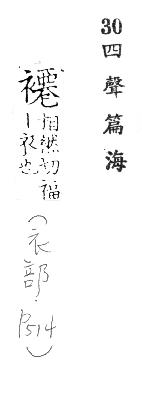 30 四聲篇海
褼 相然切福
丨衣也
（衣部．P514）